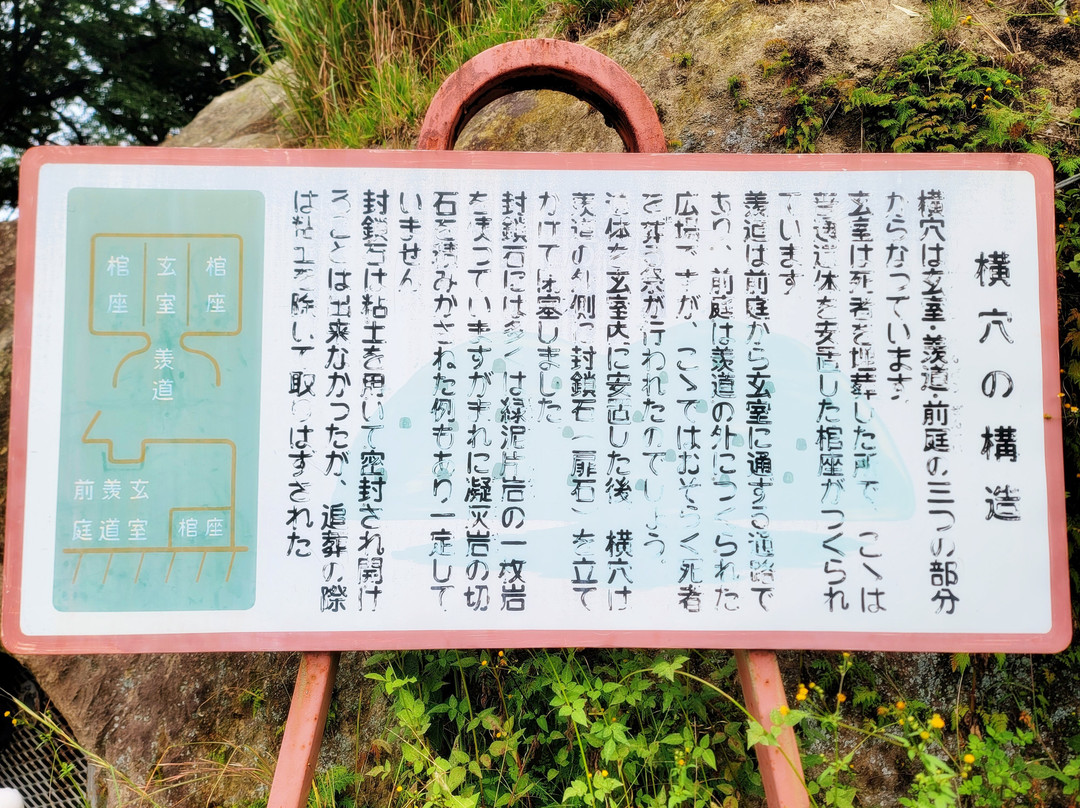 横穴の構造
横穴は玄室・羨道・前庭の三つの部分
からなっています
玄室は死者を埋葬した所で、こゝは
普通遺体を安置した棺座がつくられ
ています
羨道は前庭から玄室に通ずる通路で
あり、前庭は羨道の外につくられた
広場ですが、こゝではおそらく死者
をまつる祭が行われたのでしょう。
遺体を玄室内に安置した後、横穴は
羨道の外側に封鎖石（扉石）を立て
かけて閉塞しました
封鎖石には多くは緑泥片岩の一枚岩
をまっていますがまれに凝灰岩の切
石を積みかさねた例もあり一定して
いません
封鎖石は粘土を用いて密封され開け
ることは出来なかったが、追葬の際
は粘土を除いて取りはずされた
棺座
玄室
棺座
羨道
前庭
羨道
玄室
棺座